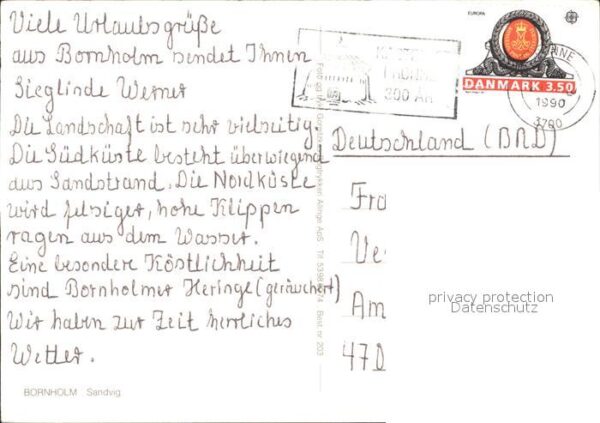 Viele Urlaubsgrüße
aus Bornholm sendet Ihnen
Sieglinde Werner
Die Landschaft ist sehr vielseitig
Die Südküste besteht überwiegend
aus Sandstrand. Die Nordküste
wird felsiger, hohe Klippen
ragen aus dem Wasser.
Eine besondere Köstlichkeit
sind Bornholmer Heringe (geräuchert)
Wir haben zur Zeit herrliches
Wetter.
BORNHOLM Sandvig
EUROPA
DANMARK 3.50
1990
3700
300 ÅR
Deutschland (BRD)
Fra
Ve
Am
470
privacy protection
Datenschutz